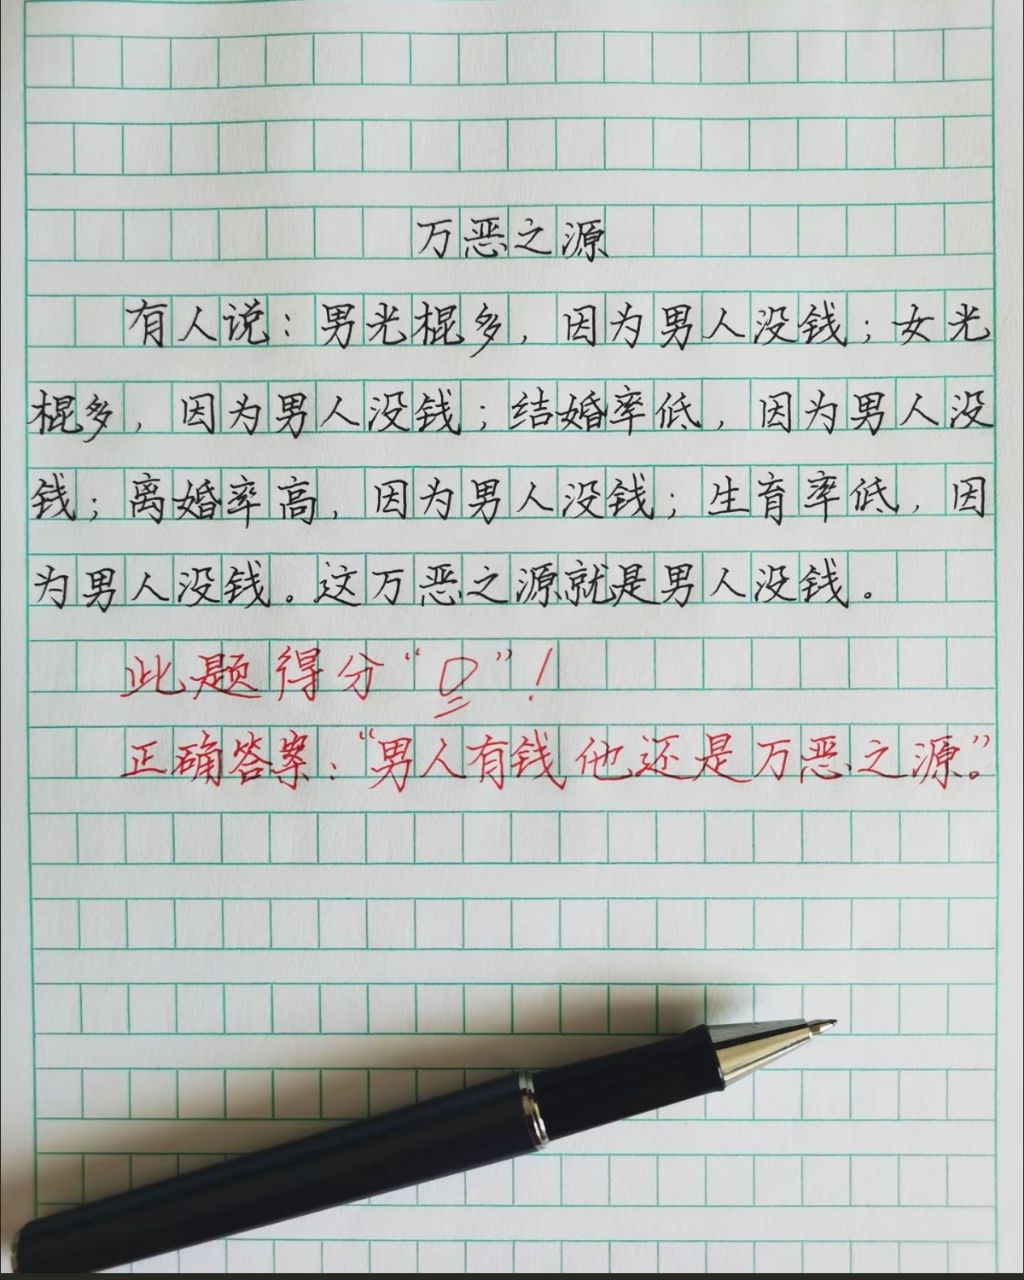 万恶之源
有人说：男光棍多，因为男人没钱；女光
棍多，因为男人没钱；结婚率低，因为男人没
钱；离婚率高，因为男人没钱；生育率低，因
为男人没钱。这万恶之源就是男人没钱。
此题得分“0”！
正确答案：“男人有钱他还是万恶之源。”